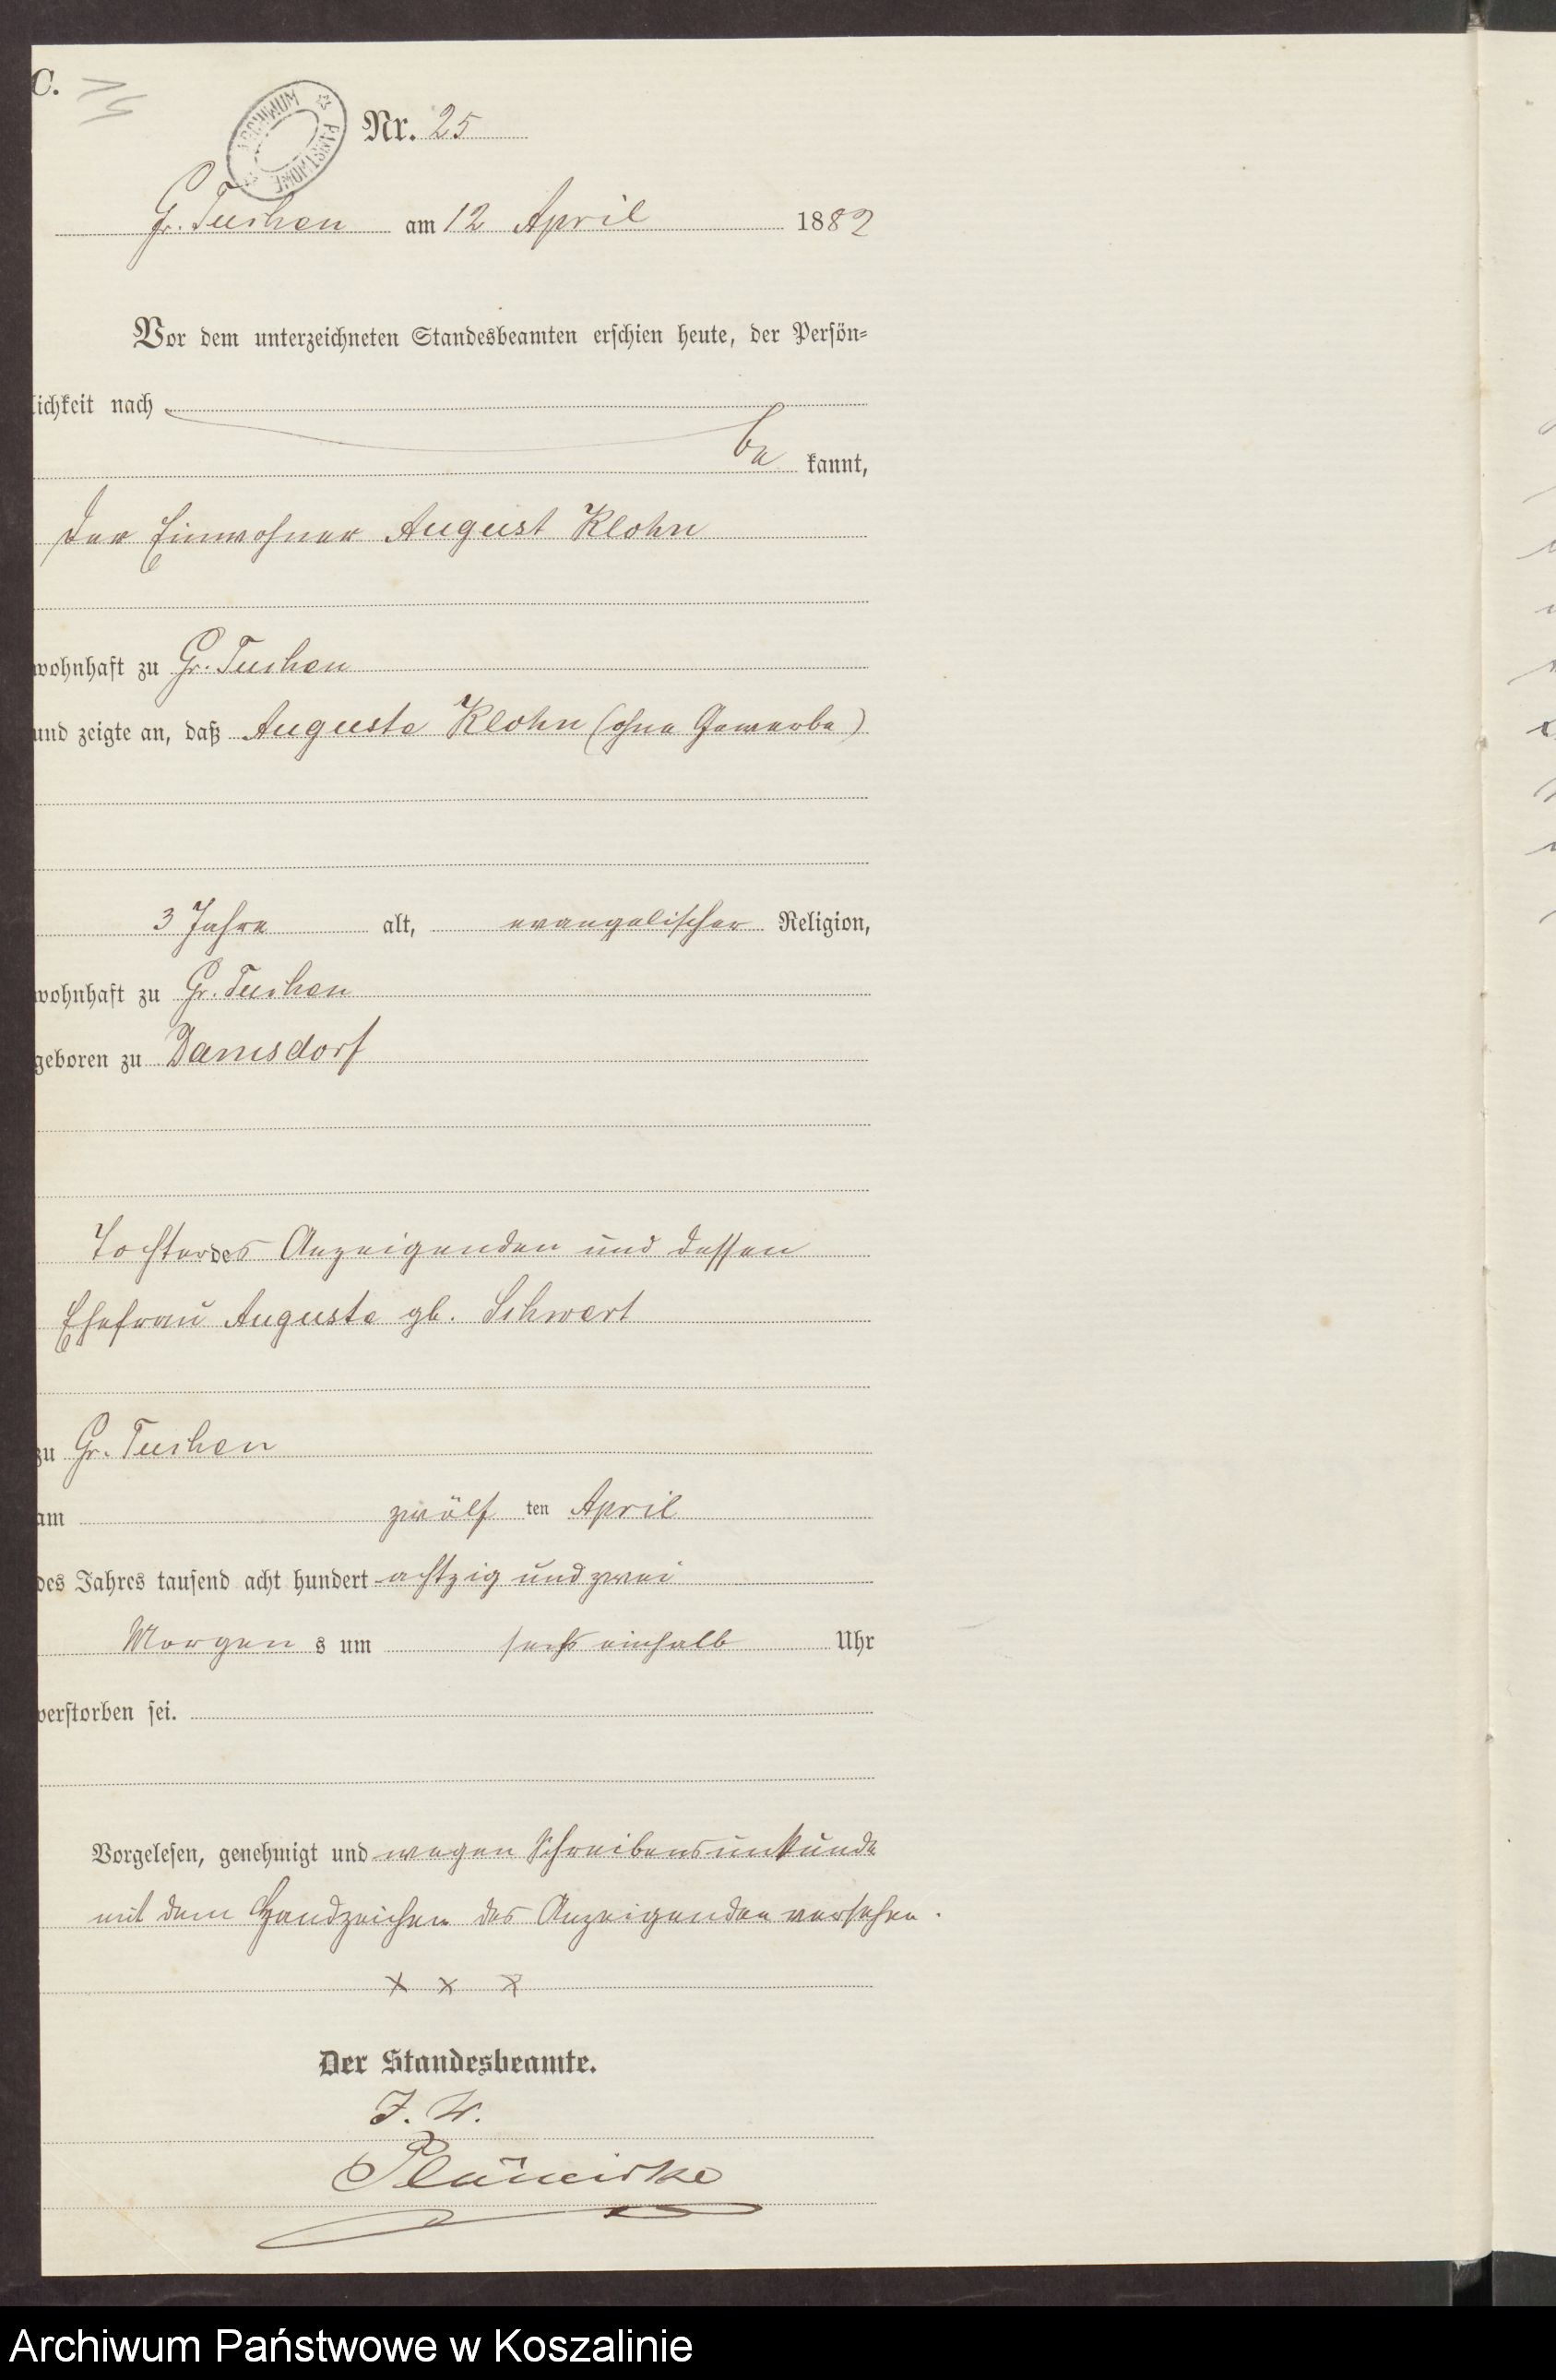 C.
ARCHIWUM PAŃSTWOWE
Nr. 25
Gr. Tuchen am 12 April 1882
Vor dem unterzeichneten Standesbeamten erschien heute, der Persön-
lichkeit nach
be kannt,
der Einwohner August Klohn
wohnhaft zu Gr. Tuchen
und zeigte an, daß Auguste Klohn (ohne Gewerbe)
3 Jahre alt, evangelischer Religion,
wohnhaft zu Gr. Tuchen
geboren zu Damsdorf
Tochter des Anzeigenden und dessen
Ehefrau Auguste gb. Schwert
zu Gr. Tuchen
am zwölf ten April
des Jahres tausend acht hundert achtzig und zwei
Morgen s um sechs einhalb Uhr
verstorben sei.
Vorgelesen, genehmigt und wegen Schreibensunkunde
mit dem Handzeichen des Anzeigenden versehen.
x x x
Der Standesbeamte.
I. V.
Archiwum Państwowe w Koszalinie